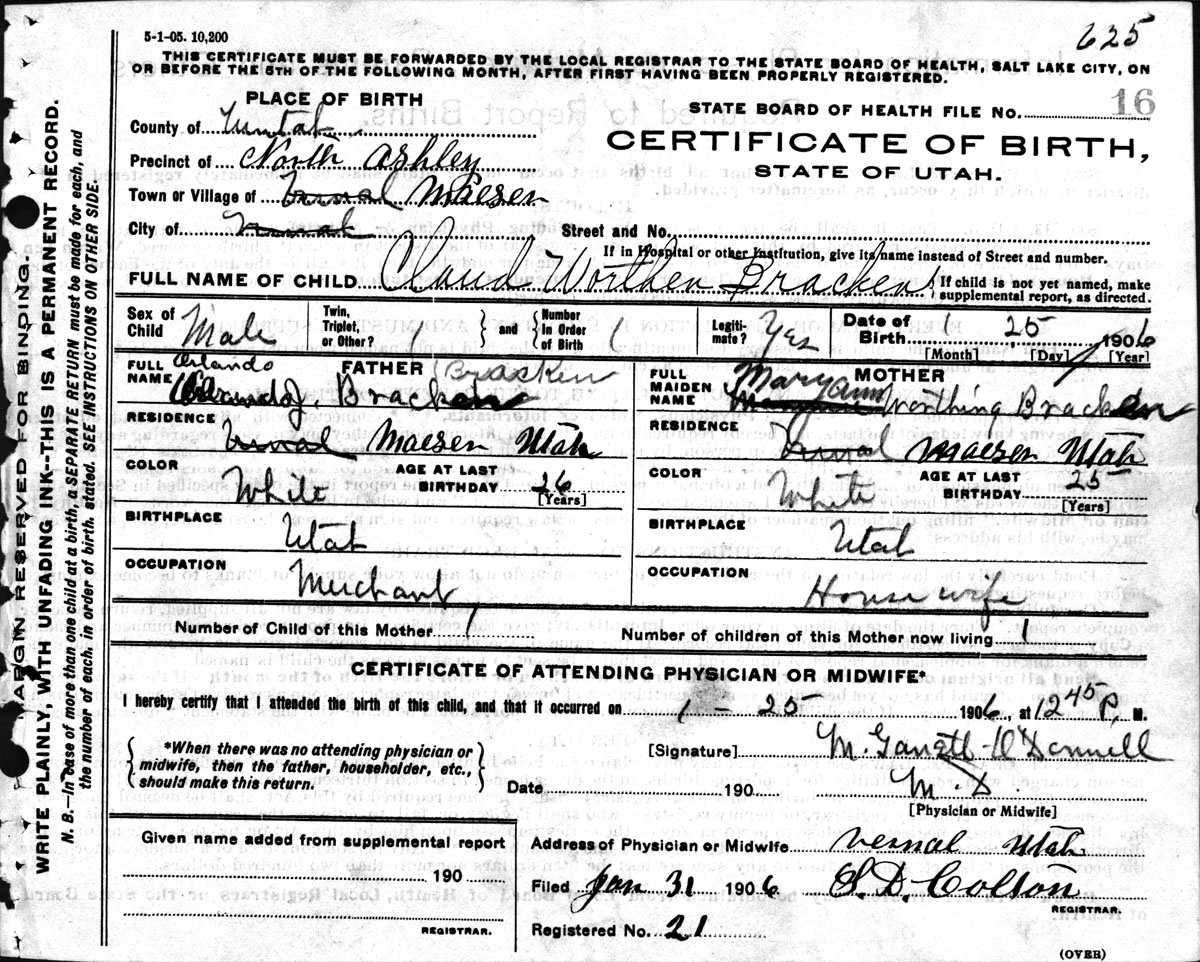 625
5-1-05. 10,200
THIS CERTIFICATE MUST BE FORWARDED BY THE LOCAL REGISTRAR TO THE STATE BOARD OF HEALTH, SALT LAKE CITY, ON
OR BEFORE THE 5TH OF THE FOLLOWING MONTH, AFTER FIRST HAVING BEEN PROPERLY REGISTERED.
PLACE OF BIRTH
STATE BOARD OF HEALTH FILE No. 16
County of Uintah
CERTIFICATE OF BIRTH,
Precinct of North Ashley
STATE OF UTAH.
Town or Village of Vernal Maesen
City of Vernal
Street and No.
If in Hospital or other Institution, give its name instead of Street and number.
FULL NAME OF CHILD Claud Worthen Bracken
If child is not yet named, make supplemental report, as directed.
Sex of Child Male
Twin, Triplet, or Other?
and Number in Order of Birth 1
Legitimate? Yes
Date of Birth 1 25 1906
[Month] [Day] [Year]
FULL NAME FATHER
Orlando Bracken
J. Bracken
FULL MAIDEN NAME MOTHER
Mary Ann Worthing Bracken
RESIDENCE Vernal Maesen Utah
RESIDENCE Vernal Maesen Utah
COLOR White
AGE AT LAST BIRTHDAY 26 [Years]
COLOR White
AGE AT LAST BIRTHDAY 25 [Years]
BIRTHPLACE Utah
BIRTHPLACE Utah
OCCUPATION Merchant
OCCUPATION House wife
Number of Child of this Mother 1
Number of children of this Mother now living 1
CERTIFICATE OF ATTENDING PHYSICIAN OR MIDWIFE*
I hereby certify that I attended the birth of this child, and that it occurred on 1 - 25 1906, at 12 45 P. M.
*When there was no attending physician or
midwife, then the father, householder, etc.,
should make this return.
[Signature] M. O'Donnell
Date 190 M.D.
[Physician or Midwife]
Given name added from supplemental report
190
REGISTRAR.
Address of Physician or Midwife Vernal Utah
Filed Jan 31 1906 S. D. Colton
REGISTRAR.
Registered No. 21
(OVER)
MARGIN RESERVED FOR BINDING.
WRITE PLAINLY, WITH UNFADING INK--THIS IS A PERMANENT RECORD.
N. B.--In case of more than one child at a birth, a SEPARATE RETURN must be made for each, and
the number of each, in order of birth, stated. SEE INSTRUCTIONS ON OTHER SIDE.